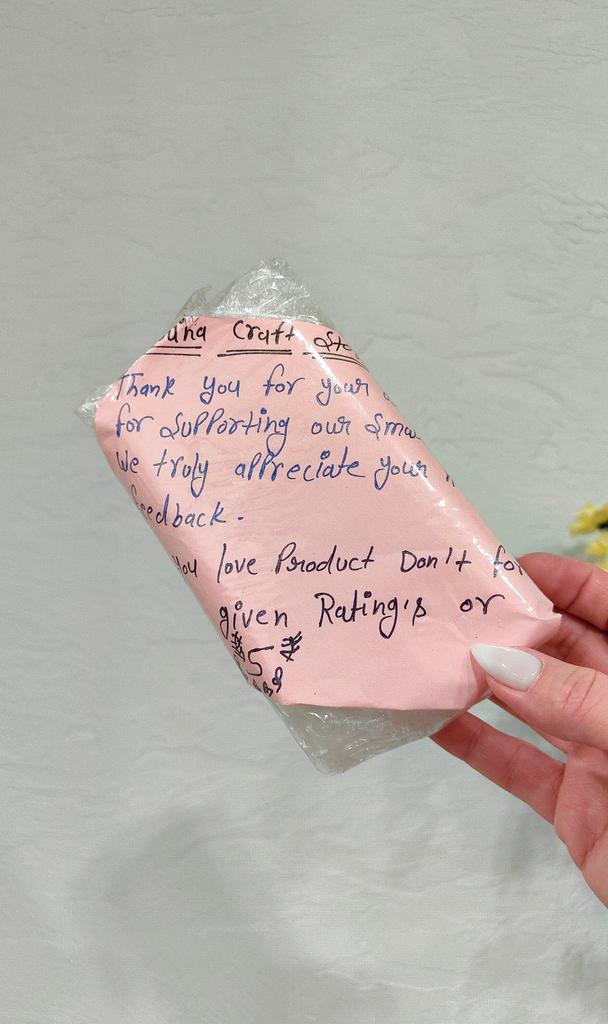 Craft
Thank you for your
for Supporting our
We truly appreciate your
feedback.
you love Product Don't
given Rating's or
5